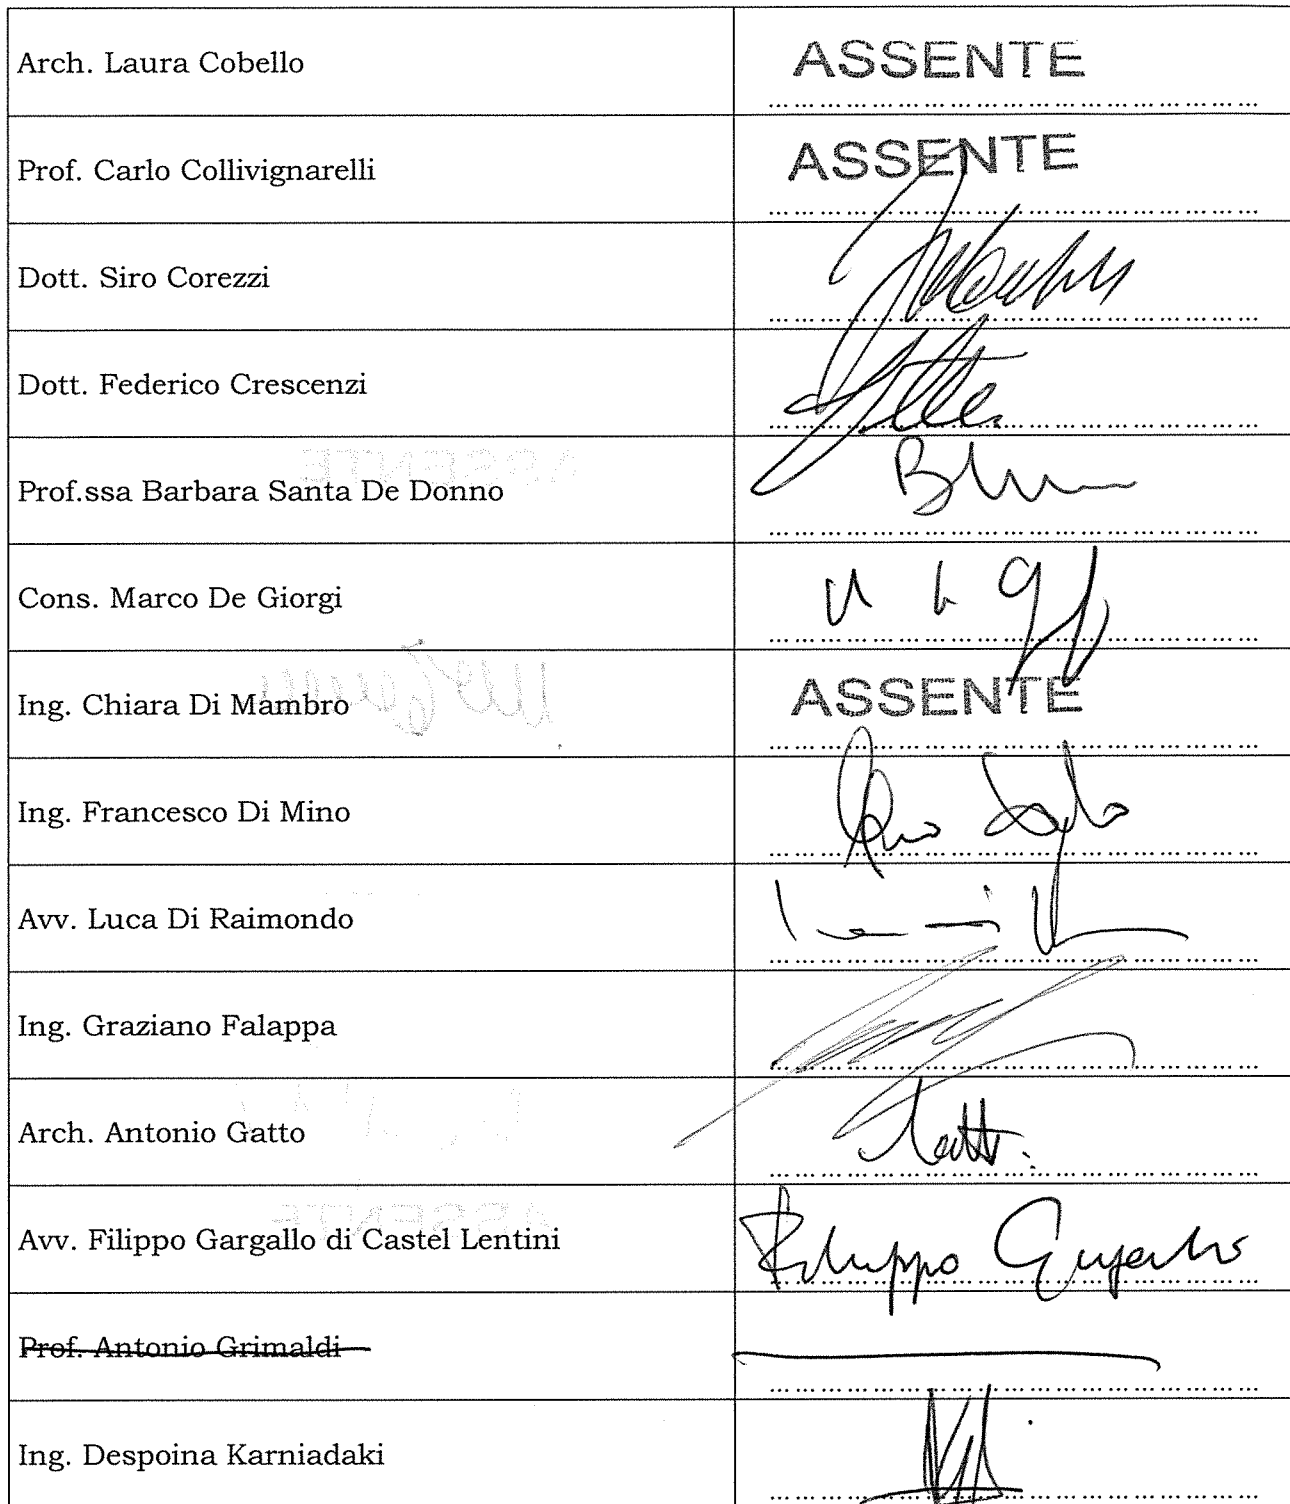 Arch. Laura Cobello
ASSENTE
Prof. Carlo Collivignarelli
ASSENTE
Dott. Siro Corezzi
Dott. Federico Crescenzi
Prof.ssa Barbara Santa De Donno
Cons. Marco De Giorgi
Ing. Chiara Di Mambro
ASSENTE
Ing. Francesco Di Mino
Avv. Luca Di Raimondo
Ing. Graziano Falappa
Arch. Antonio Gatto
Avv. Filippo Gargallo di Castel Lentini
Filippo Gargallo
Prof. Antonio Grimaldi
Ing. Despoina Karniadaki